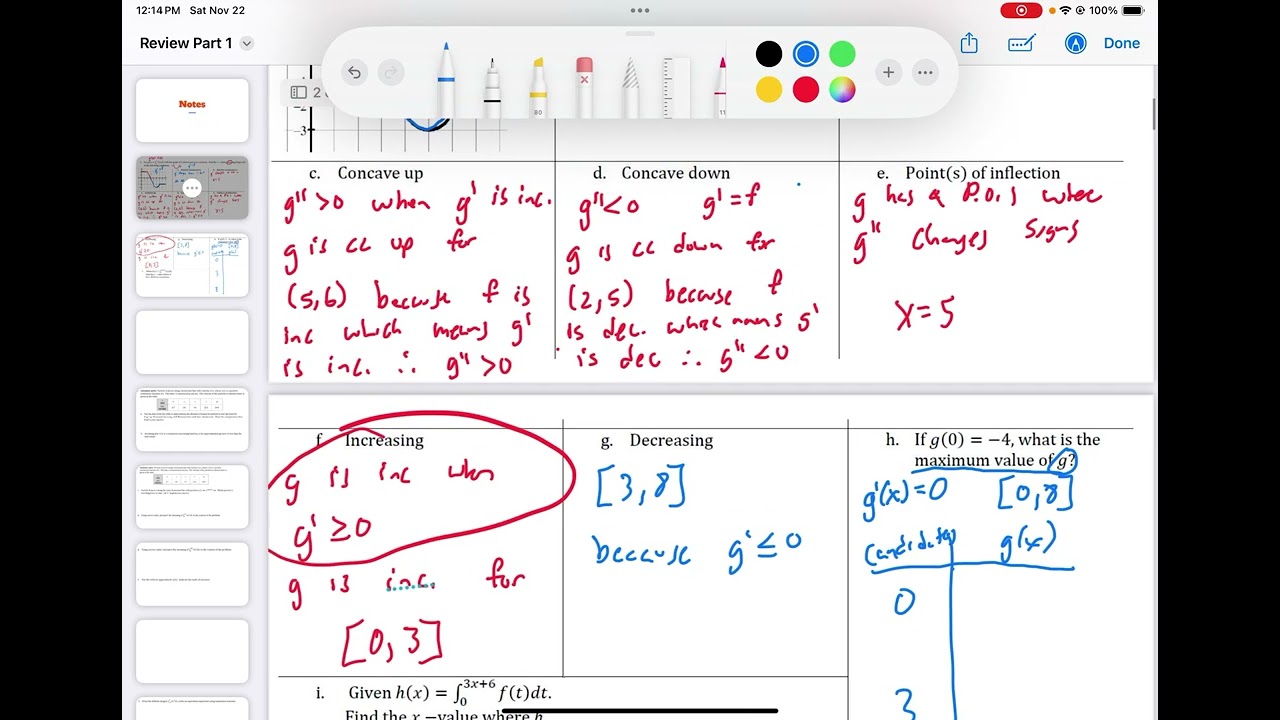 12:14 PM Sat Nov 22
100%
Review Part 1
Done
Notes
80
11
2
−3
c. Concave up
g" >0 when g' is inc.
g is cc up for
(5,6) because f is
inc which means g'
is inc. ∴ g" >0
d. Concave down
g"<0 g'=f
g is cc down for
(2,5) because f
is dec. which means g'
is dec ∴ g" <0
e. Point(s) of inflection
g has a P.O.I when
g" changes signs
x=5
f. Increasing
g is inc when
g' ≥0
g is inc. for
[0,3]
g. Decreasing
[3,8]
because g' ≤ 0
h. If g(0) = −4, what is the
maximum value of g?
g'(x)=0 [0,8]
Candidates g(x)
0
3
i. Given h(x) = ∫₀³ˣ⁺⁶ f(t)dt.
Find the x −value where h